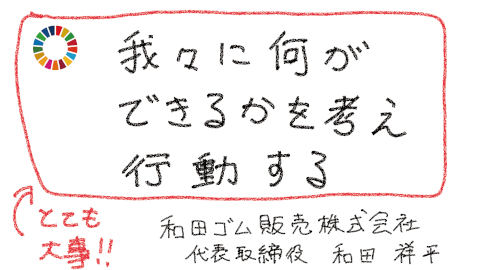 我々に何が
できるかを考え
行動する
とても
大事!!
和田ゴム販売株式会社
代表取締役 和田 祥平